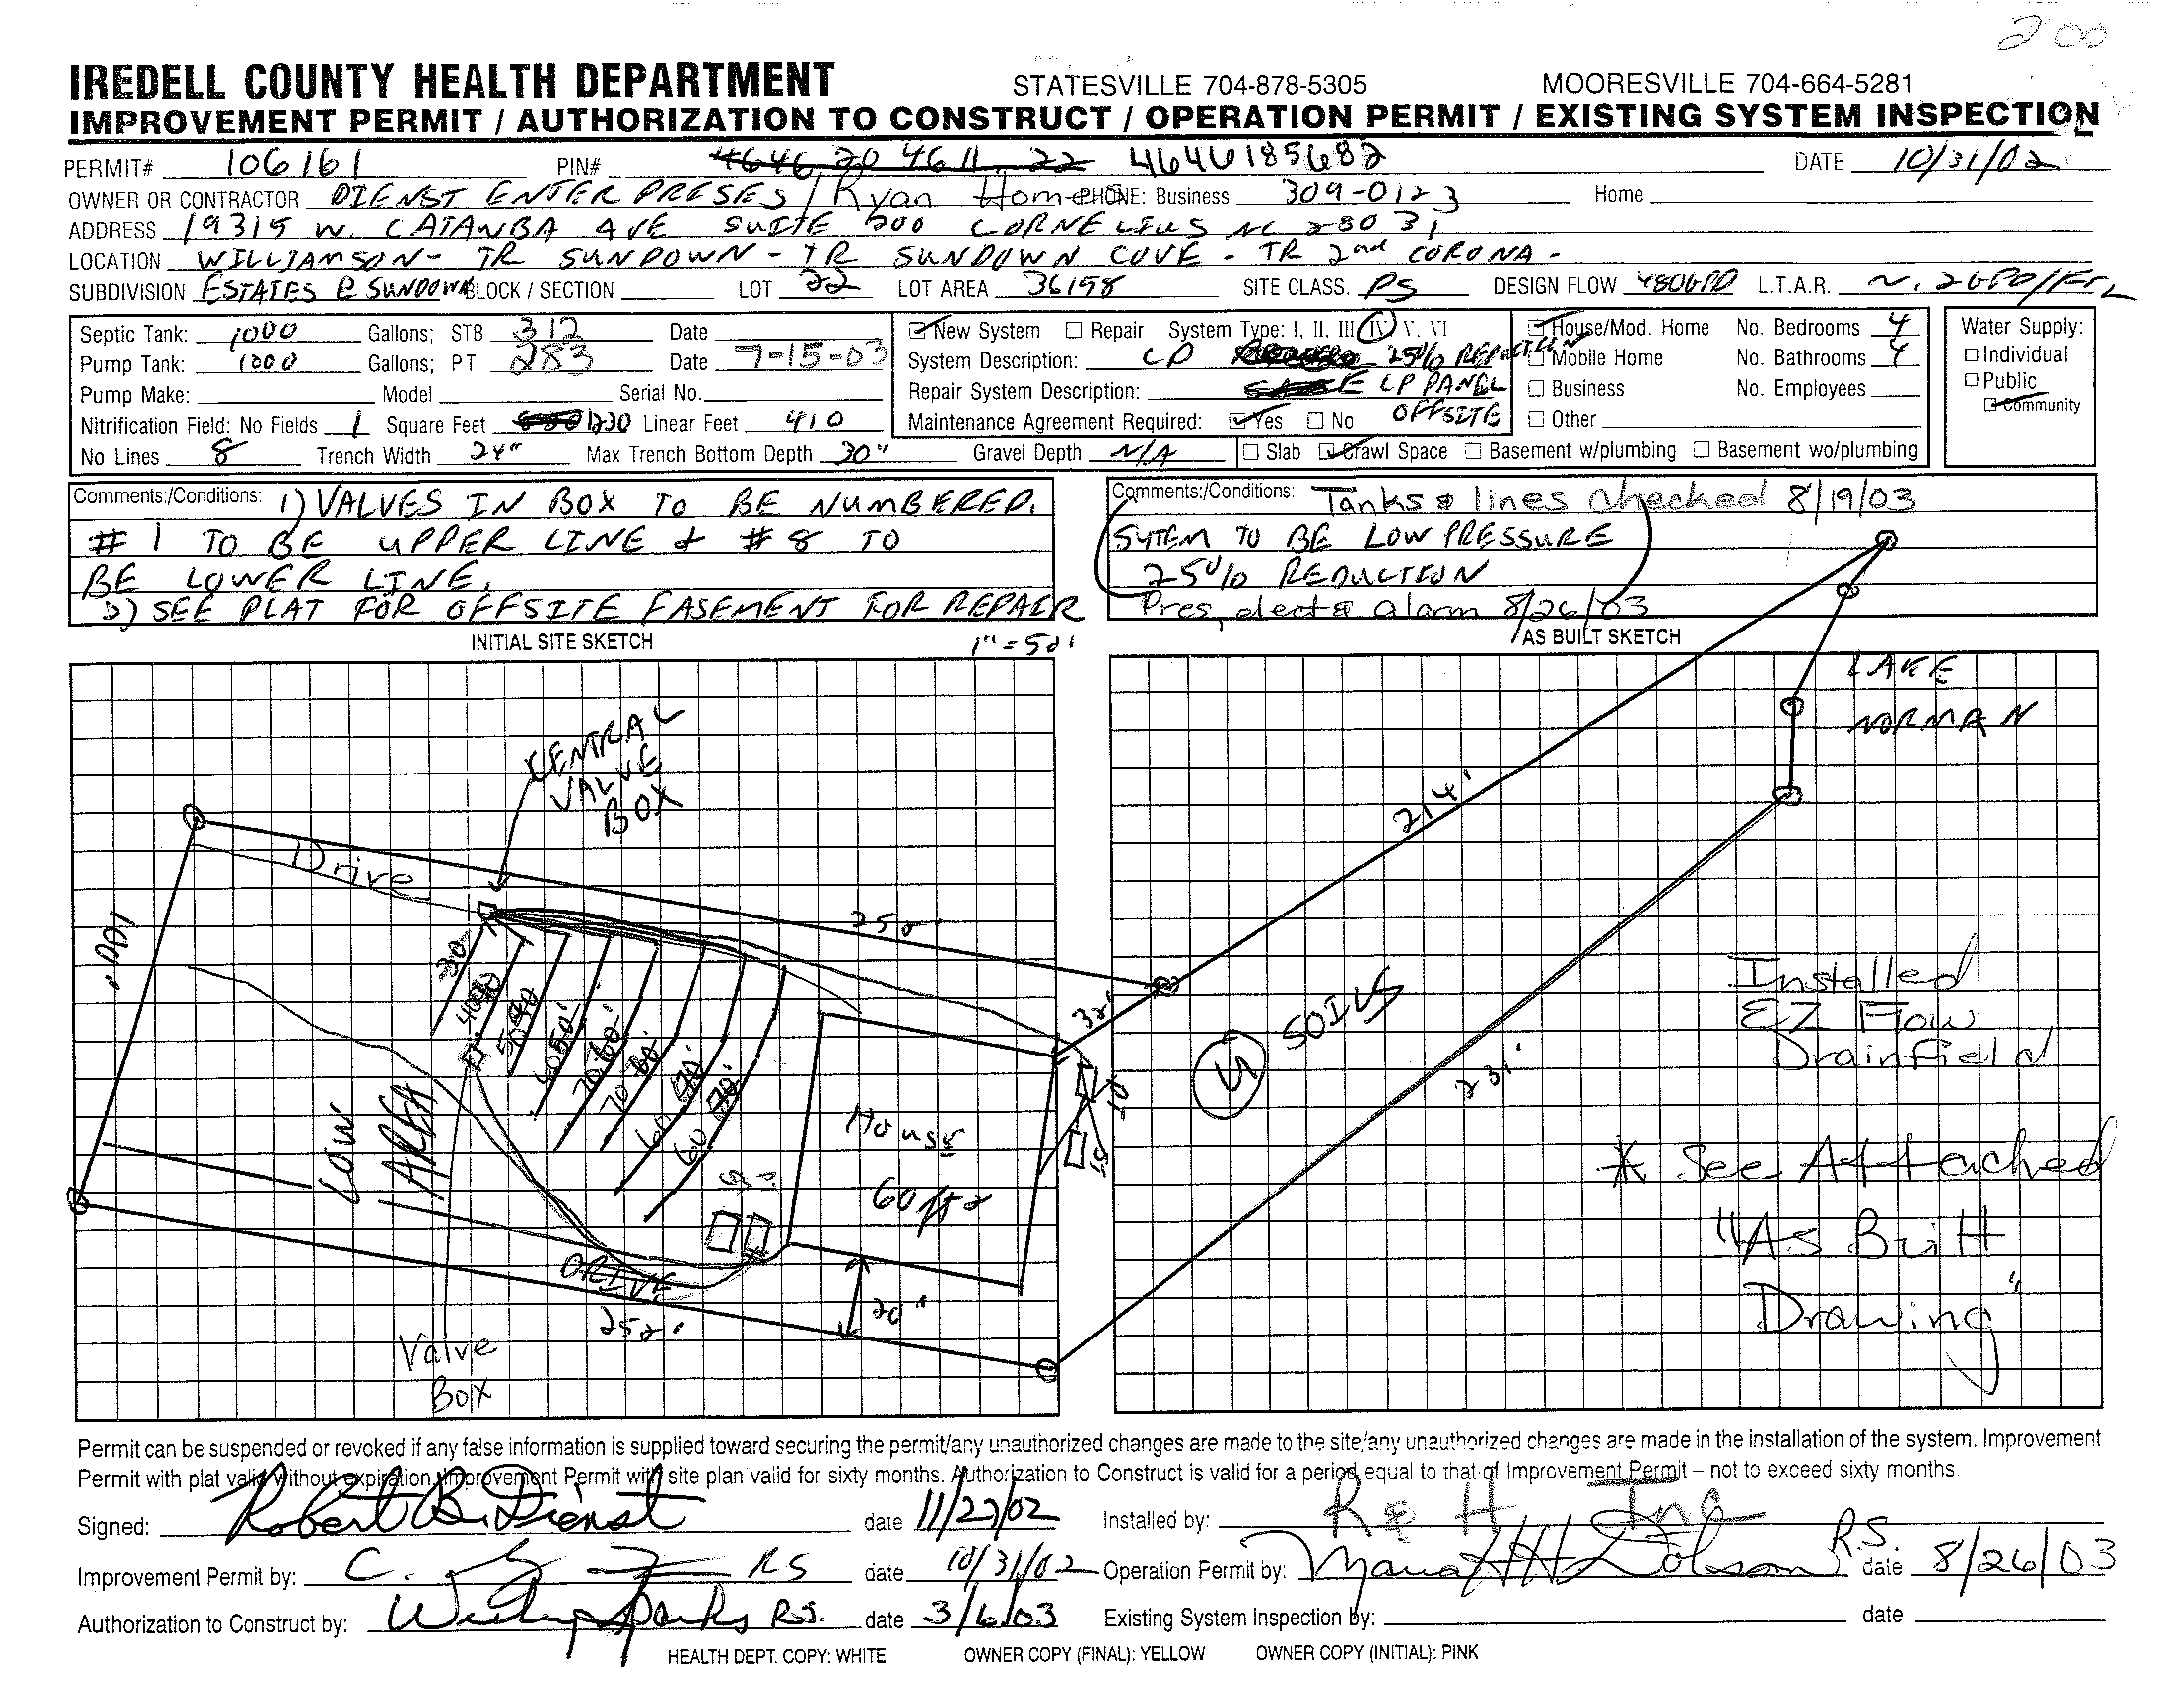 200
IREDELL COUNTY HEALTH DEPARTMENT STATESVILLE 704-878-5305 MOORESVILLE 704-664-5281
IMPROVEMENT PERMIT / AUTHORIZATION TO CONSTRUCT / OPERATION PERMIT / EXISTING SYSTEM INSPECTION
PERMIT# 106161 PIN# 4646185682 DATE 10/31/02
OWNER OR CONTRACTOR DIENST ENTERPRESES / Ryan Home PHONE: Business 309-0123 Home
ADDRESS 19315 W. CATANBA AVE SUITE 200 CORNELIUS NC 28031
LOCATION WILLIAMSON - TR SUNDOWN - TR SUNDOWN COVE - TR 2nd CORONA -
SUBDIVISION ESTATES @ SUNDOWN BLOCK / SECTION LOT 22 LOT AREA 36198 SITE CLASS. PS DESIGN FLOW 480GPD L.T.A.R. ~.2GPD/FT2
Septic Tank: 1000 Gallons; STB 312 Date
Pump Tank: 1000 Gallons; PT 283 Date 7-15-03
Pump Make: Model Serial No.
Nitrification Field: No Fields 1 Square Feet 1230 Linear Feet 410
No Lines 8 Trench Width 24" Max Trench Bottom Depth 30" Gravel Depth N/A
New System Repair System Type: I, II, III IV V. VI
System Description: LP 25% REDUCTION
Repair System Description: LP PANEL
Maintenance Agreement Required: Yes No OFFSITE
House/Mod. Home No. Bedrooms 4
Mobile Home No. Bathrooms 4
Business No. Employees
Other
Slab Crawl Space Basement w/plumbing Basement wo/plumbing
Water Supply:
Individual
Public
Community
Comments:/Conditions: 1) VALVES IN BOX TO BE NUMBERED.
# 1 TO BE UPPER LINE & # 8 TO
BE LOWER LINE.
2) SEE PLAT FOR OFFSITE EASEMENT FOR REPAIR
Comments:/Conditions: Tanks & lines checked 8/19/03
SYTEM TO BE LOW PRESSURE
25% REDUCTION
Pres, elect & alarm 8/26/03
INITIAL SITE SKETCH 1"=50'
AS BUILT SKETCH
LAKE
NORMAN
CENTRAL
VALVE
BOX
214'
Drive
252'
100'
30
32'
SOILS
Installed
EZ Flow
Drainfield
231'
LOW
AREA
House
60 ft2
* See Attached
"As Built
Drawing"
DRIVE
252'
20'
Valve
Box
Permit can be suspended or revoked if any false information is supplied toward securing the permit/any unauthorized changes are made to the site/any unauthorized changes are made in the installation of the system. Improvement
Permit with plat valid without expiration. Improvement Permit with site plan valid for sixty months. Authorization to Construct is valid for a period equal to that of Improvement Permit – not to exceed sixty months.
Signed: Robert B. Dienst date 11/27/02 Installed by: R & H Inc
Improvement Permit by: C. RS date 10/31/02 Operation Permit by: Maria H Dobson R.S. date 8/26/03
Authorization to Construct by: Sparks R.S. date 3/6/03 Existing System Inspection by: date
HEALTH DEPT. COPY: WHITE OWNER COPY (FINAL): YELLOW OWNER COPY (INITIAL): PINK